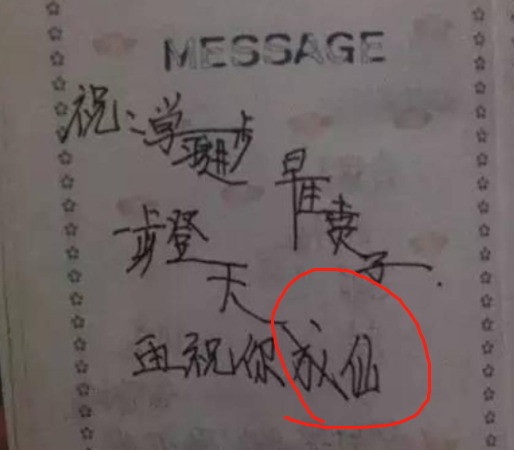 MESSAGE
祝:学习进步
早生贵子
一步登天
再祝你成仙